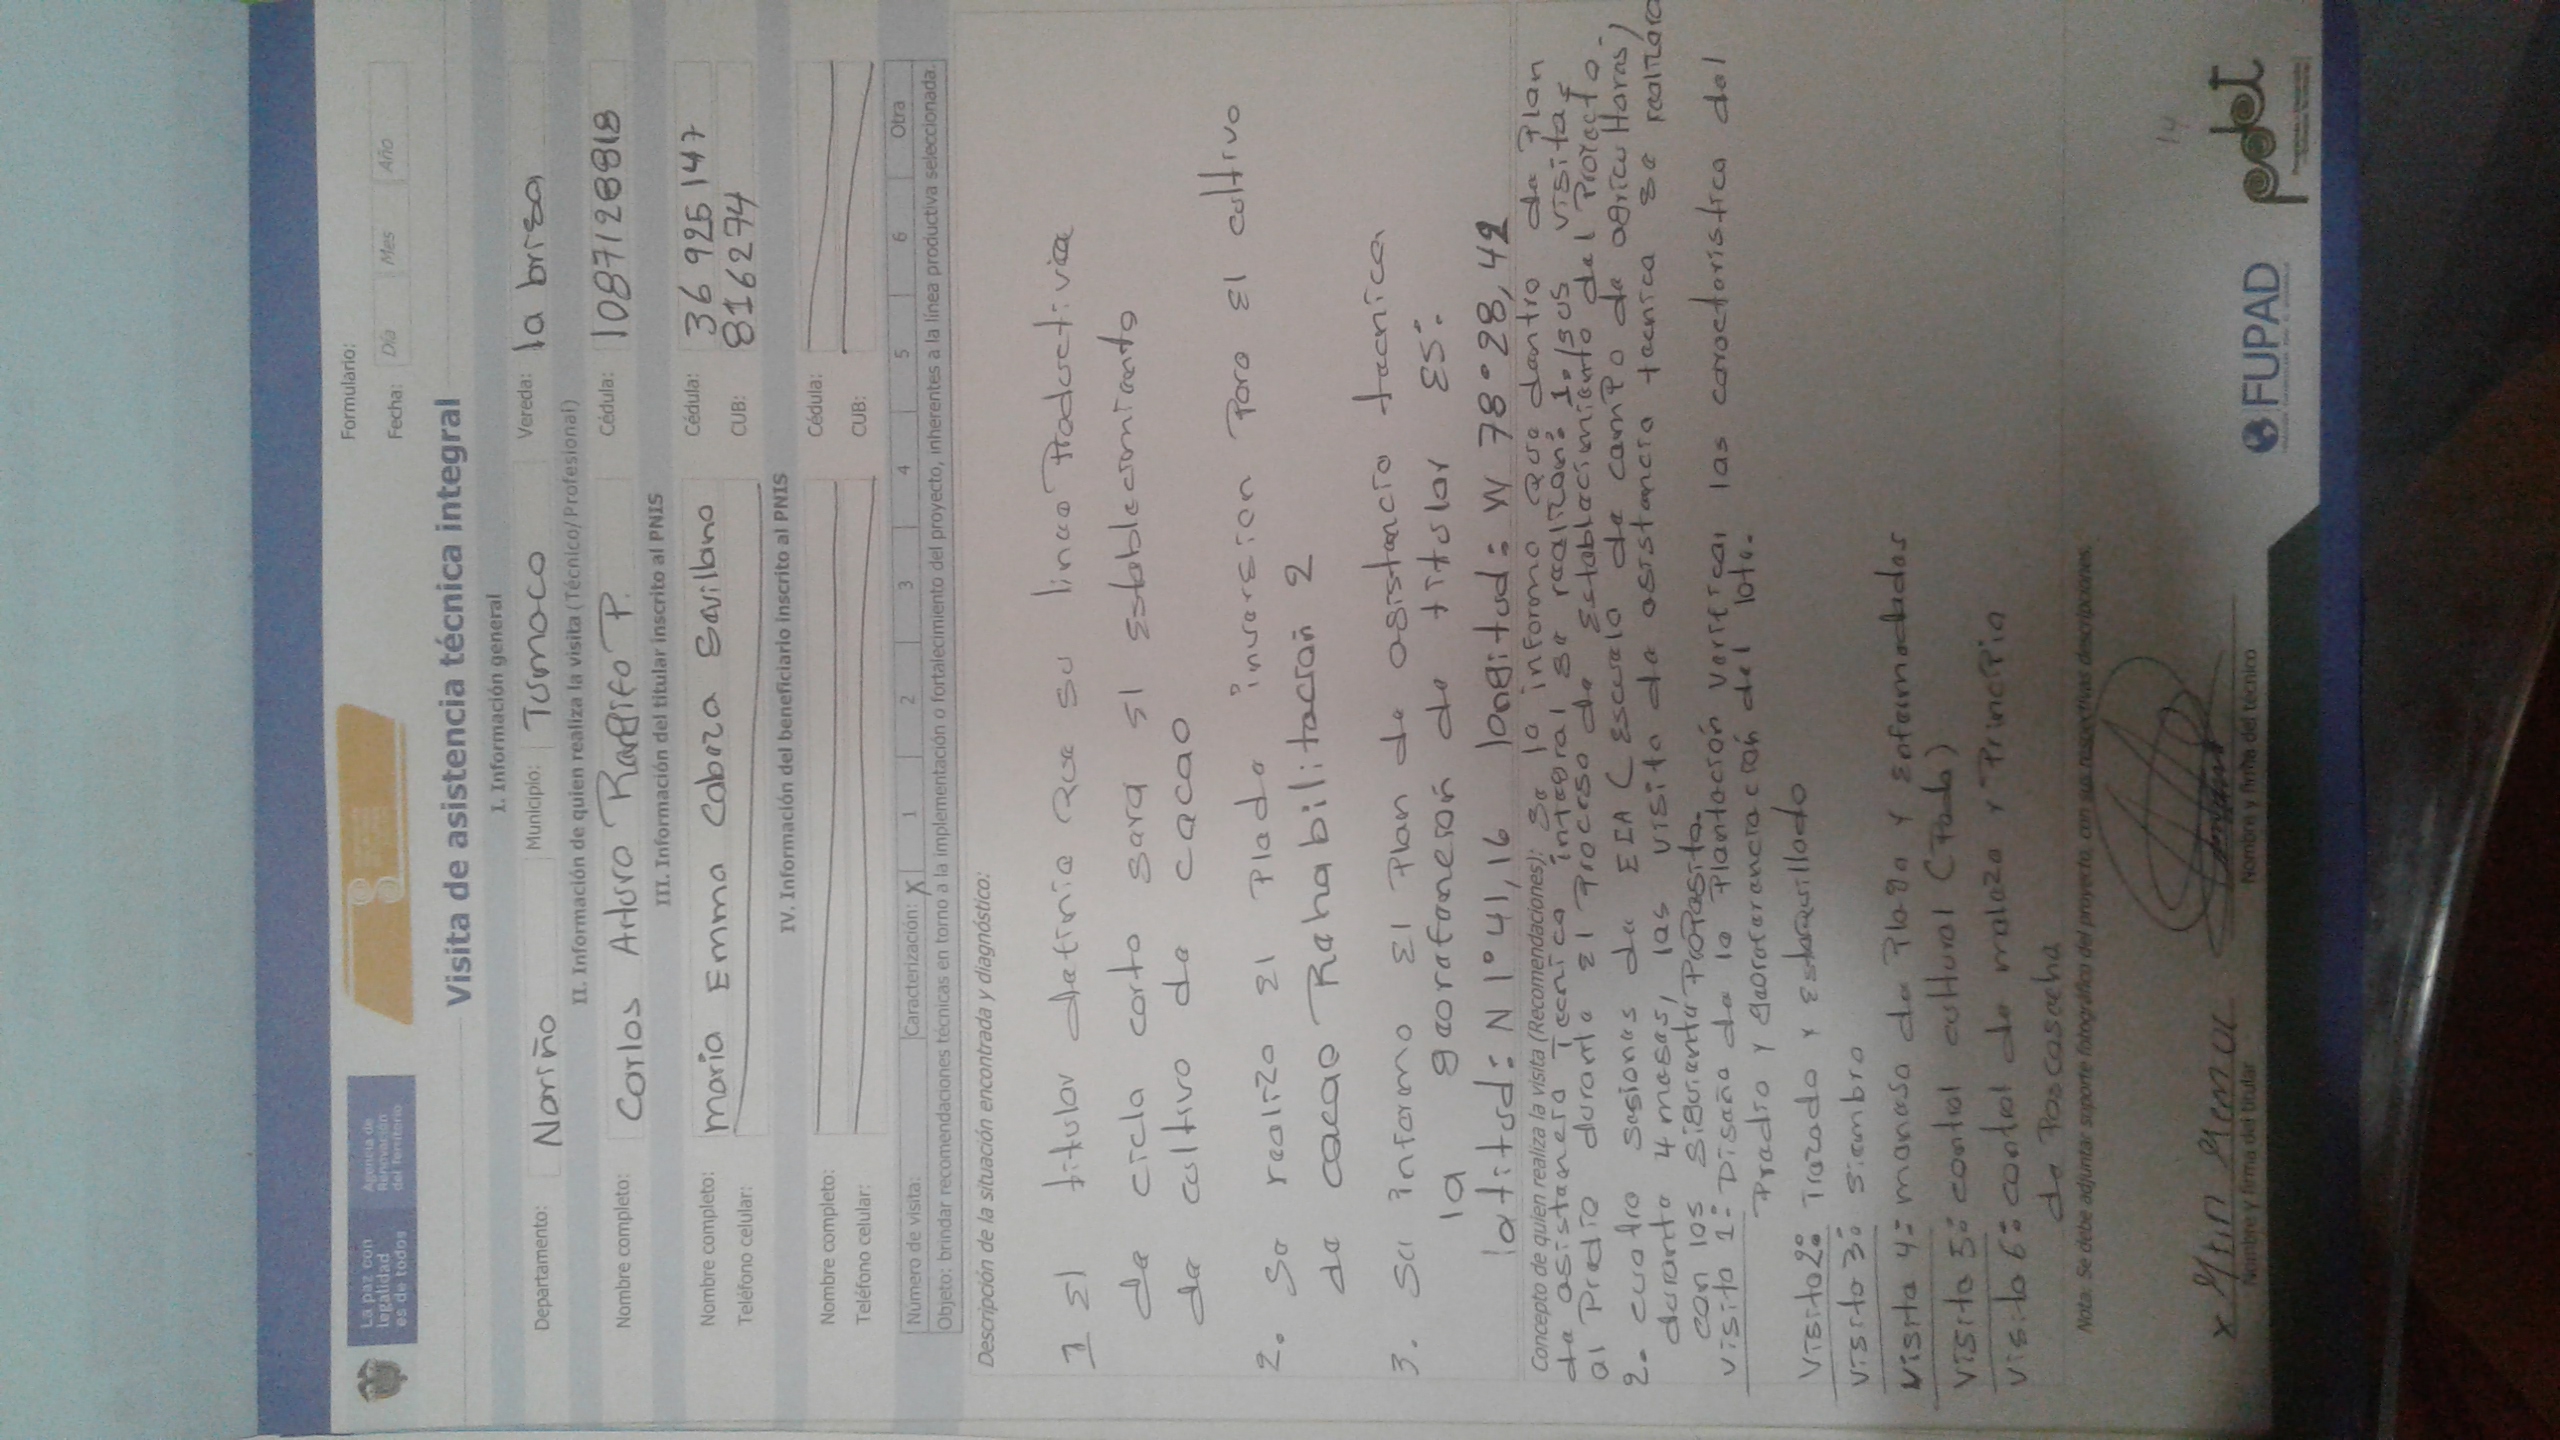 La paz con
legalidad
es de todos
Agencia de
Renovación
del Territorio
Formulario:
Fecha: Día Mes Año
Visita de asistencia técnica integral
I. Información general
Departamento: Nariño Municipio: Tumaco Vereda: la brisa
II. Información de quien realiza la visita (Técnico/Profesional)
Nombre completo: Carlos Arturo Rengifo P. Cédula: 1087128818
III. Información del titular inscrito al PNIS
Nombre completo: maria Emma Cabeza Cédula: 36 925 147
Teléfono celular: CUB: 816274
IV. Información del beneficiario inscrito al PNIS
Nombre completo: Cédula:
Teléfono celular: CUB:
Número de visita: Caracterización: X 1 2 3 4 5 6 Otra
Objeto: brindar recomendaciones técnicas en torno a la implementación o fortalecimiento del proyecto, inherentes a la línea productiva seleccionada.
Descripción de la situación encontrada y diagnóstico:
1 El titular definio que su linea Productiva
de ciclo corto sará el Establecimiento
de cultivo de cacao
2. Se realizo el Plade inversion Para El cultivo
de cacao Rehabilitación 2
3. Se informo El Plan de asistencia tecnica
la georefención de titular ES:
latitud: N 1° 41,16 longitud: W 78° 28, 42
Concepto de quien realiza la visita (Recomendaciones): Se lo informo que dentro de Plan
de asistencia Tecnica integral se realizan: 1. sus visitas
al Predio durante el Proceso de Establecimiento del Proyecto.
2. cuatro sesiones de EIA (Escuela de campo de agricultoras)
durante 4 meses, las visita de asistencia tecnica se realizara
con los siguiente Proposito.
visita 1: Diseño de la Plantación verificar las caractoristica del
Predio y georeferenciación del lote.
Visita 2: Trazado y Estaquillado
visita 3: siembra
Visita 4: manejo de Plaga y Enfermedades
visita 5: control cultural (Poda)
visita 6: control de maleza y Principio
de Poscosecha
Nota: Se debe adjuntar soporte fotográfico del proyecto, con sus respectivas descripciones.
Nombre y firma del titular
Nombre y firma del técnico
14
FUPAD
pdet